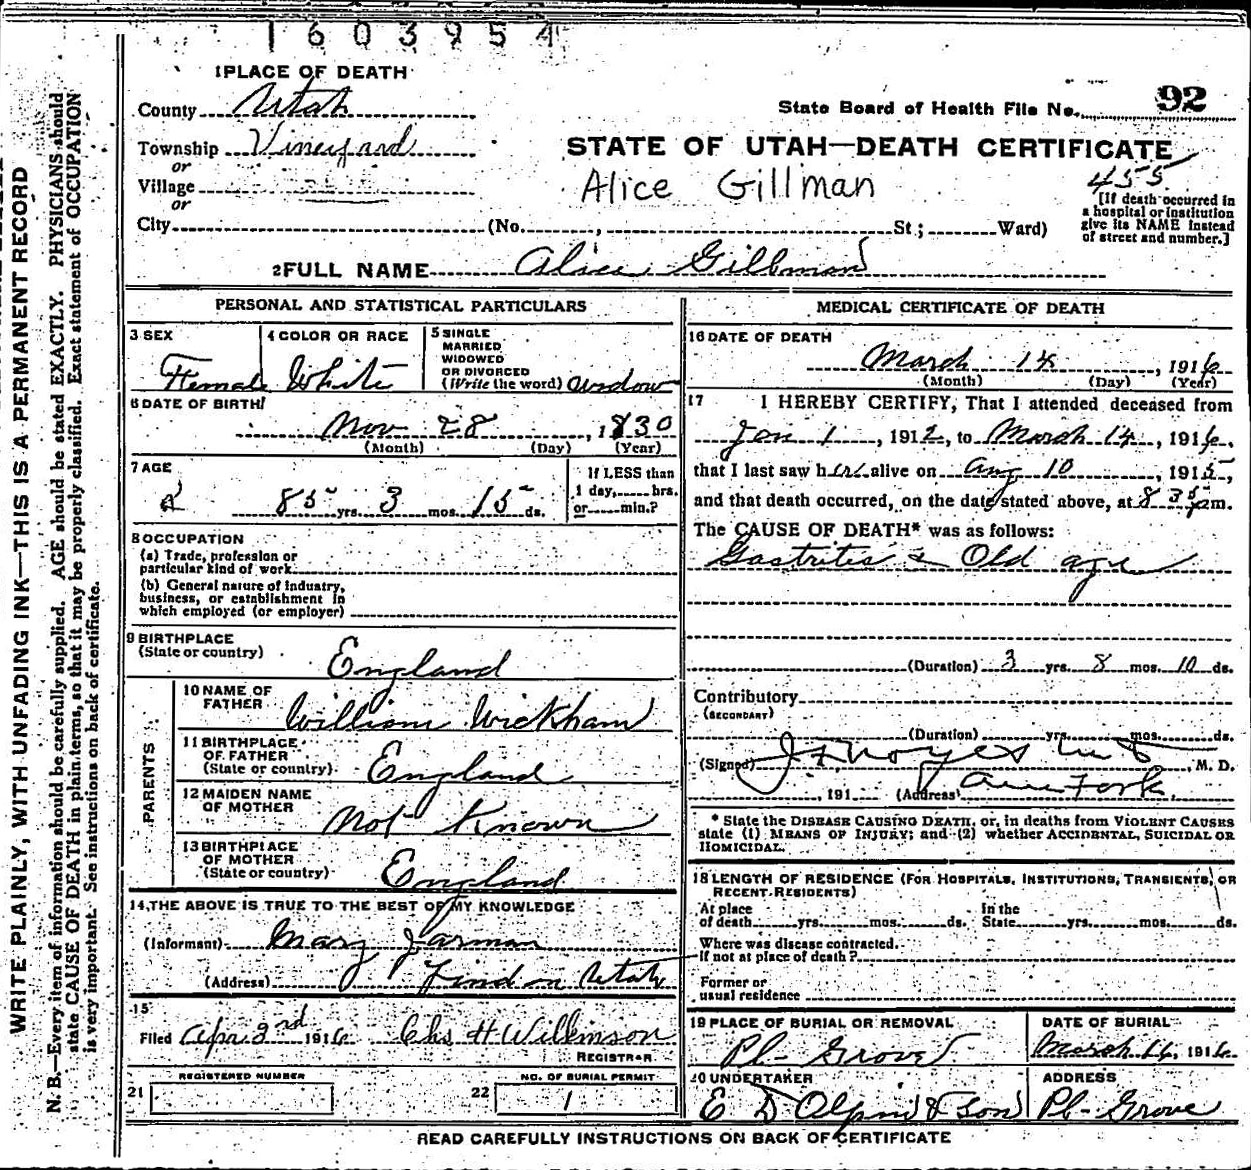 1603954
1 PLACE OF DEATH
County Utah
State Board of Health File No. 92
Township Vineyard
or
Village
or
STATE OF UTAH—DEATH CERTIFICATE
Alice Gillman
455
[If death occurred in
a hospital or institution
give its NAME instead
of street and number.]
City (No. , St.; Ward)
2 FULL NAME Alice Gillman
PERSONAL AND STATISTICAL PARTICULARS
3 SEX
Female
4 COLOR OR RACE
White
5 SINGLE
MARRIED
WIDOWED
OR DIVORCED
(Write the word) Widow
6 DATE OF BIRTH
Nov 28, 1830
(Month) (Day) (Year)
7 AGE
85 yrs. 3 mos. 15 ds.
If LESS than
1 day, hrs.
or min.?
8 OCCUPATION
(a) Trade, profession or
particular kind of work
(b) General nature of industry,
business, or establishment in
which employed (or employer)
9 BIRTHPLACE
(State or country)
England
PARENTS
10 NAME OF
FATHER
William Wickham
11 BIRTHPLACE
OF FATHER
(State or country)
England
12 MAIDEN NAME
OF MOTHER
Not Known
13 BIRTHPLACE
OF MOTHER
(State or country)
England
14 THE ABOVE IS TRUE TO THE BEST OF MY KNOWLEDGE
(Informant) Mary Jarman
(Address) Lindon Utah
15
Filed Apr 3rd 1916 Chs H Wilkinson
REGISTRAR
REGISTERED NUMBER
21
NO. OF BURIAL PERMIT
22 1
MEDICAL CERTIFICATE OF DEATH
16 DATE OF DEATH
March 14, 1916
(Month) (Day) (Year)
17 I HEREBY CERTIFY, That I attended deceased from
Jan 1, 1912, to March 14, 1916,
that I last saw her alive on Aug 10, 1915,
and that death occurred, on the date stated above, at 8 35 m.
The CAUSE OF DEATH* was as follows:
Gastritis & Old age
(Duration) 3 yrs. 8 mos. 10 ds.
Contributory
(SECONDARY)
(Duration) yrs. mos. ds.
(Signed) Noyes M D, M. D.
, 191 (Address) Am Fork
* State the DISEASE CAUSING DEATH, or, in deaths from VIOLENT CAUSES
state (1) MEANS OF INJURY; and (2) whether ACCIDENTAL, SUICIDAL OR
HOMICIDAL.
18 LENGTH OF RESIDENCE (FOR HOSPITALS, INSTITUTIONS, TRANSIENTS, OR
RECENT RESIDENTS)
At place
of death yrs. mos. ds.
In the
State yrs. mos. ds.
Where was disease contracted.
if not at place of death?
Former or
usual residence
19 PLACE OF BURIAL OR REMOVAL
Pl- Grove
DATE OF BURIAL
March 16, 1916
20 UNDERTAKER
E D Olpin & Son
ADDRESS
Pl- Grove
READ CAREFULLY INSTRUCTIONS ON BACK OF CERTIFICATE
WRITE PLAINLY, WITH UNFADING INK—THIS IS A PERMANENT RECORD
N. B.—Every item of information should be carefully supplied. AGE should be stated EXACTLY. PHYSICIANS should
state CAUSE OF DEATH in plain terms, so that it may be properly classified. Exact statement of OCCUPATION
is very important. See instructions on back of certificate.